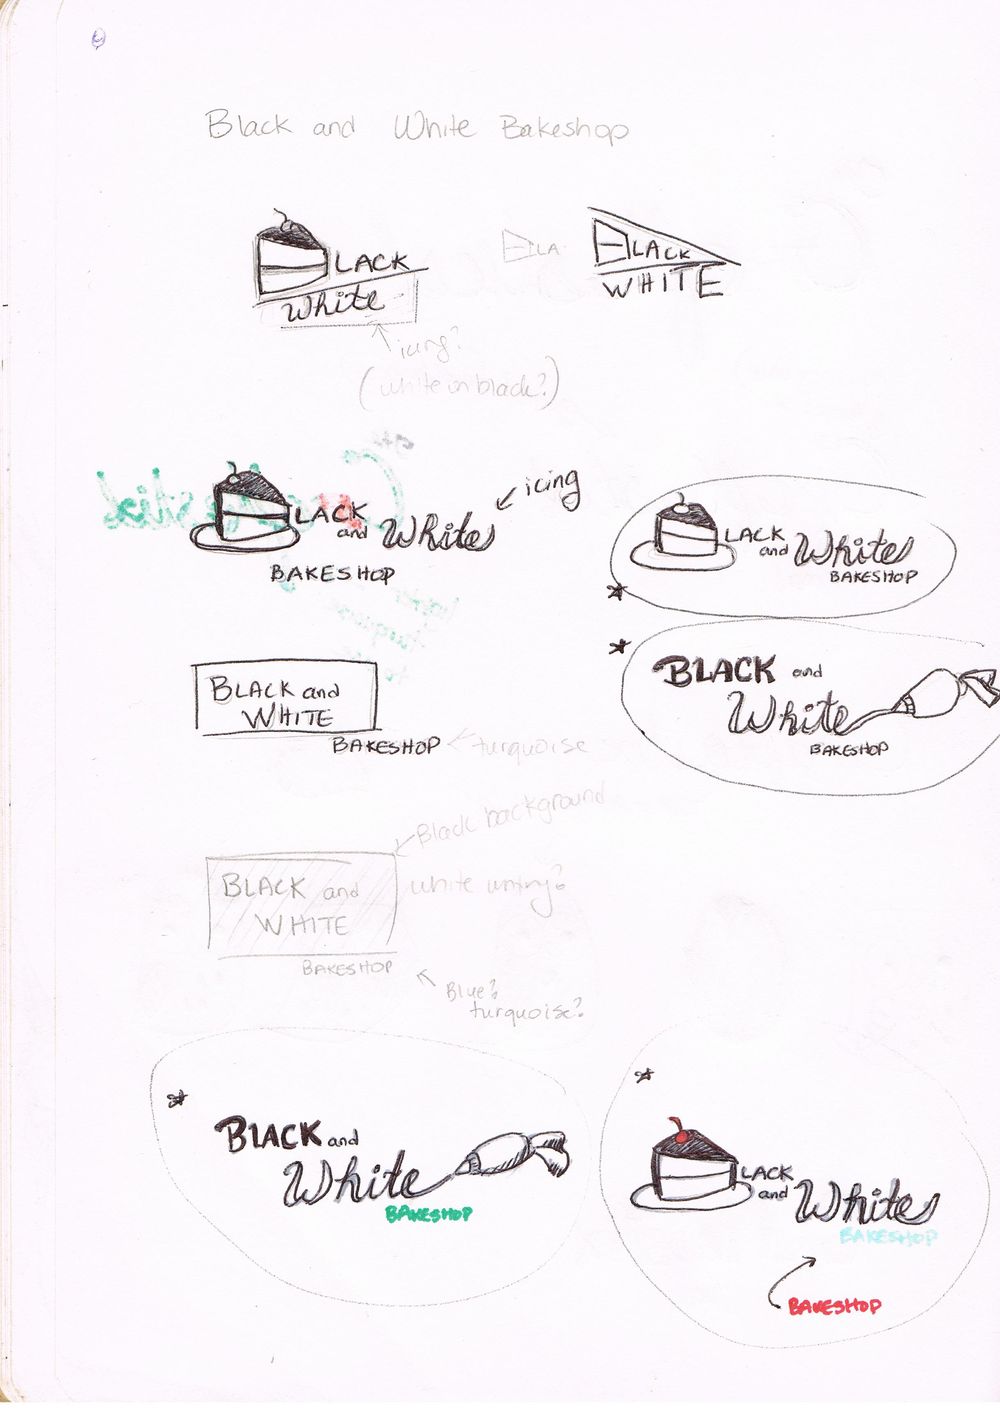 Black and White Bakeshop
LACK
White
icing?
(white on black?)
LA
LACK
WHITE
LACK
and Whites
BAKESHOP
icing
LACK
and Whites
BAKESHOP
BLACK and
WHITE
BAKESHOP
turquoise
BLACK and
White
BAKESHOP
Black background
white
BLACK and
WHITE
BAKESHOP
Blue?
turquoise?
BLACK and
White
BAKESHOP
LACK
and Whites
BAKESHOP
BAKESHOP